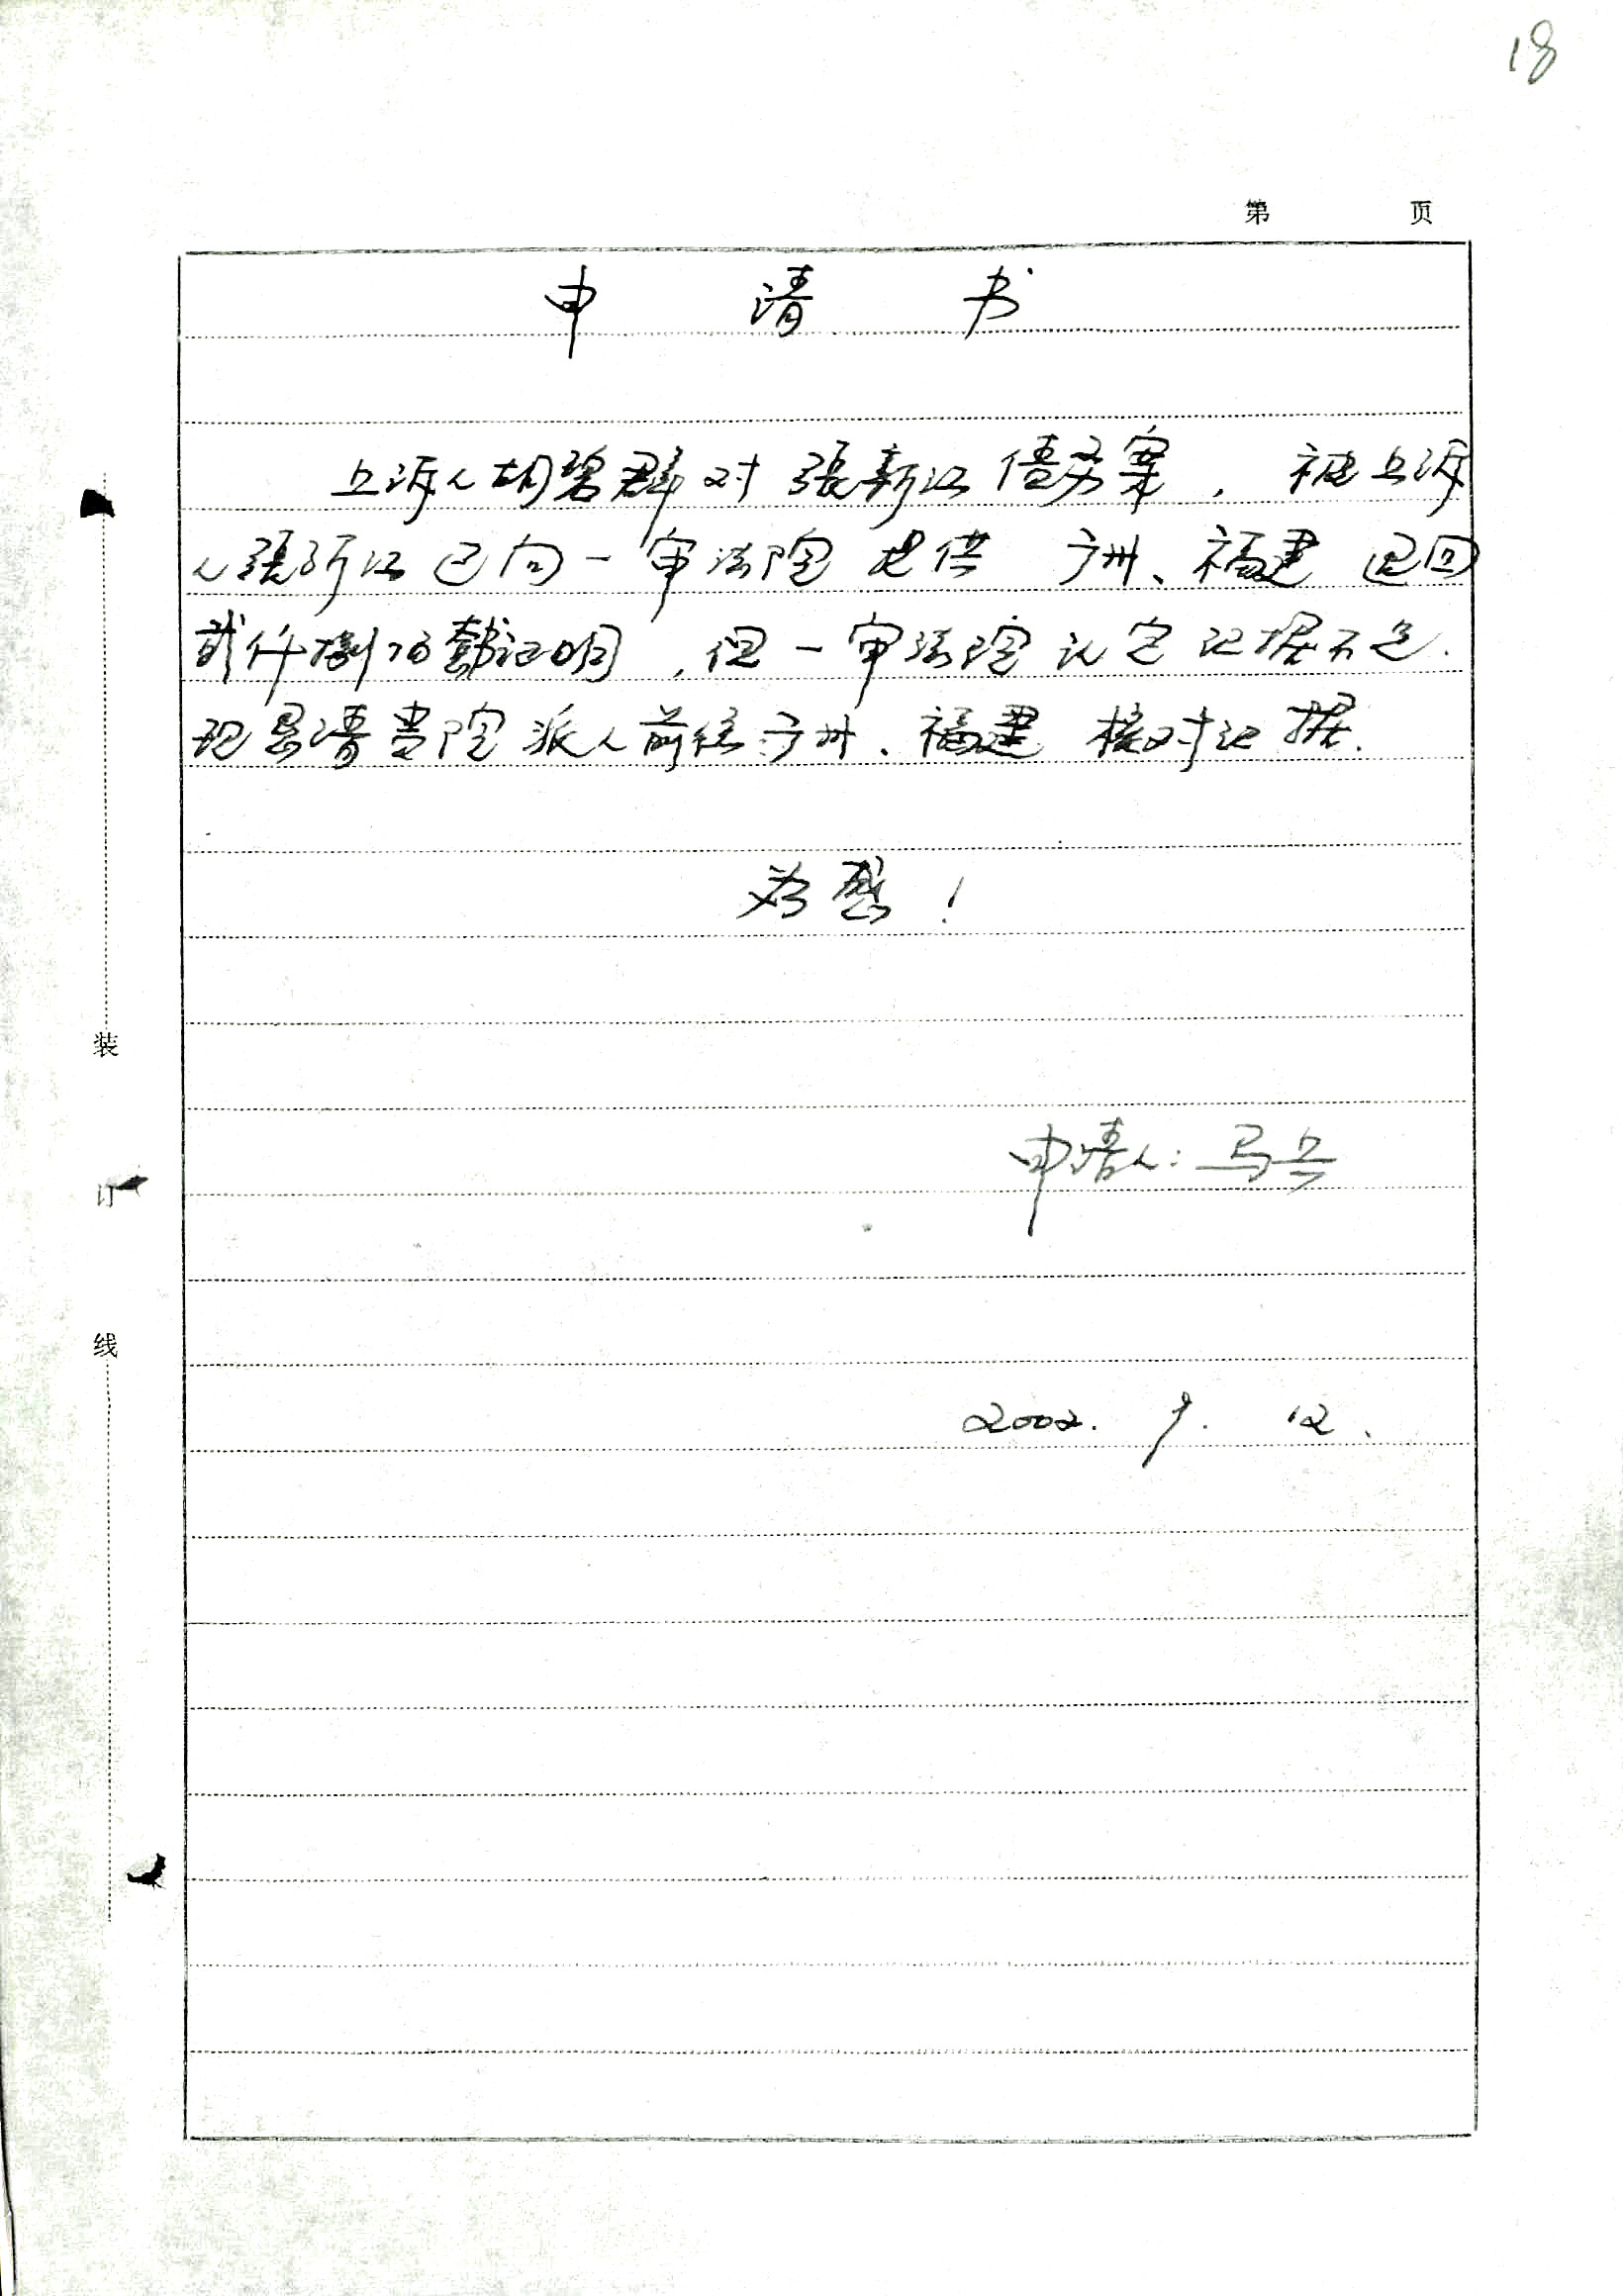 18
第 页
申 请 书
上诉人胡碧群对張新江债务案，被上诉
人張新江已向一审法院提供 广州、福建 退回
证明，但一审法院认定证据不足.
现恳请贵院派人前往广州、福建 核对证据.
为感！
申请人：马兵
2002. 9. 12.
装
订
线